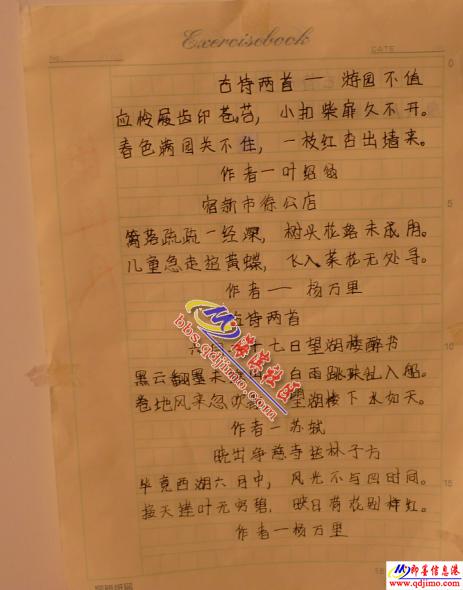 Exercisebook
No.
DATE
古诗两首 — 游园不值
应怜屐齿印苍苔，小扣柴扉久不开。
春色满园关不住，一枝红杏出墙来。
作者—叶绍翁
宿新市徐公店
篱落疏疏一径深，树头花落未成阴。
儿童急走追黄蝶，飞入菜花无处寻。
作者— 杨万里
古诗两首
六 十七日望湖楼醉书
黑云翻墨未 白雨跳珠乱入船。
卷地风来忽吹 望湖楼下水如天。
作者—苏轼
晓出净慈寺送林子方
毕竟西湖六月中，风光不与四时同。
接天莲叶无穷碧，映日荷花别样红。
作者—杨万里
0
5
10
15
bbs.qdjimo.com
即墨信息港
www.qdjimo.com